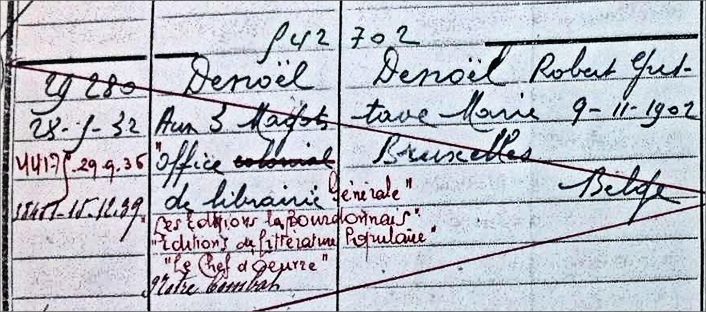 542 702
29 280 Denoël Denoël Robert Gus-
28-5-32 Aux 3 Magots tave Marie 9-11-1902
29.9.36 "Office colonial Bruxelles
de librairie Générale" Belge
15.12.39. "Les Editions la Bourdonnais"
"Editions de Littérature Populaire"
"Le Chef d'Oeuvre"
Notre Combat